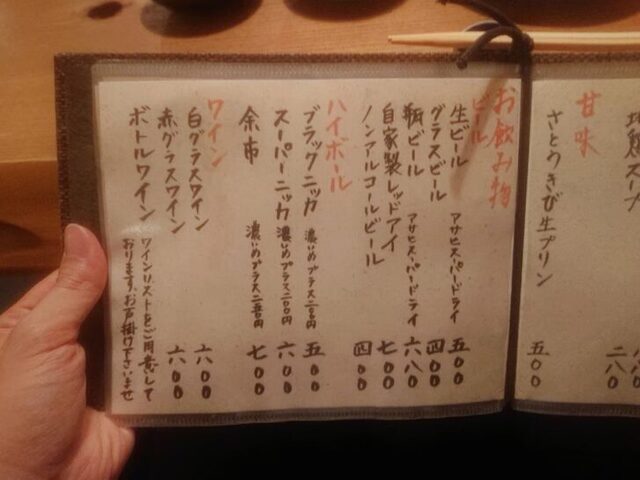 地魚スープ
二八〇
甘味
さとうきび生プリン 五〇〇
お飲み物
ビール
生ビール アサヒスーパードライ 五〇〇
グラスビール 四〇〇
瓶ビール アサヒスーパードライ 六八〇
自家製レッドアイ 七〇〇
ノンアルコールビール 四〇〇
ハイボール
ブラックニッカ 濃いめプラス一〇〇円 五〇〇
スーパーニッカ 濃いめプラス二〇〇円 六〇〇
余市 濃いめプラス二五〇円 七〇〇
ワイン
白グラスワイン 六〇〇
赤グラスワイン 六〇〇
ボトルワイン ワインリストをご用意して
おります、お声掛け下さいませ